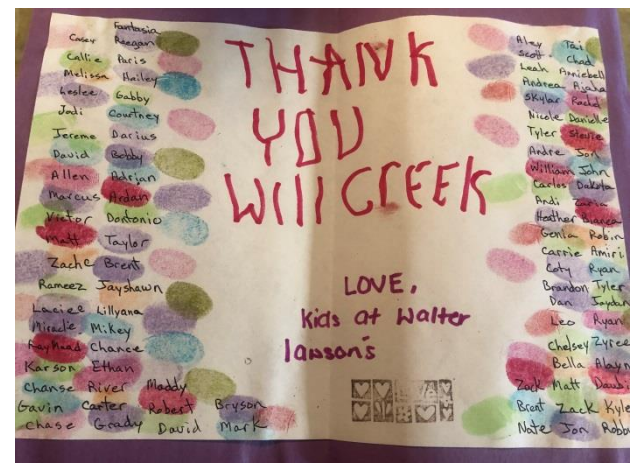 Fantasia
Casey Reegan
Callie Paris
Melissa Hailey
Leslee Gabby
Jodi Courtney
Jereme Darius
David Bobby
Allen Adrian
Marcus Ardan
Victor Dontonio
Matt Taylor
Zache Brent
Rameez Jayshawn
Laciee Lillyana
Miracle Mikey
Raymond Chance
Karson Ethan
Chanse River Maddy
Gavin Carter Robert Bryson
Chase Grady David Mark
THANK
YOU
Will CrEEK
LOVE,
Kids at Walter
lawson's
Alex Tai
Scott Chad
Leah Anniebell
Andrea
Skylar Rachel
Nicole Danielle
Tyler Stevie
Andre Jon
William John
Carlos Dakota
Andi Zaria
Heather Bianca
Genia Robin
Carrie Amiri
Coty Ryan
Brandon Tyler
Dan Jaydan
Leo Ryan
Chelsey Zyree
Bella
Zack Matt
Brent Zack Kyle
Nate Jon Robby